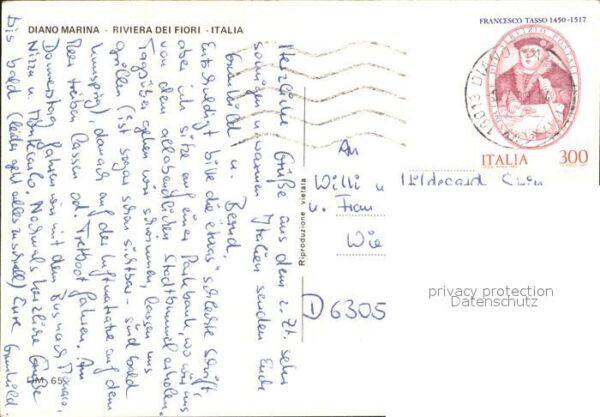 DIANO MARINA - RIVIERA DEI FIORI - ITALIA
Herzliche Grüße aus dem z. Zt. sehr
sonnigen u. warmen Italien senden Euch
Gunhild u. Bernd.
Entschuldigt bitte die etwas "schlechte Schrift",
aber ich sitze auf einer Parkbank, wo wir uns
von dem allabendlichen Stadtbummel erholen.
Tagsüber gehen wir schwimmen, lassen uns
grillen (ist sogar schon sichtbar - sind bald
knusprig), danach auf der Luftmatratze auf dem
Meer treiben lassen od. Tretboot fahren. Am
Donnerstag fahren wir mit dem Bus nach Monaco,
Nizza u. Monte Carlo. Nochmals herzliche Grüße
Bis bald (leider geht alles zu schnell) Eure Gunhild
DM 65
Riproduzione vietata
FRANCESCO TASSO 1450-1517
ITALIA 300
An
Willi u. Hildegard
u. Frau
Wie
D 6305
privacy protection
Datenschutz